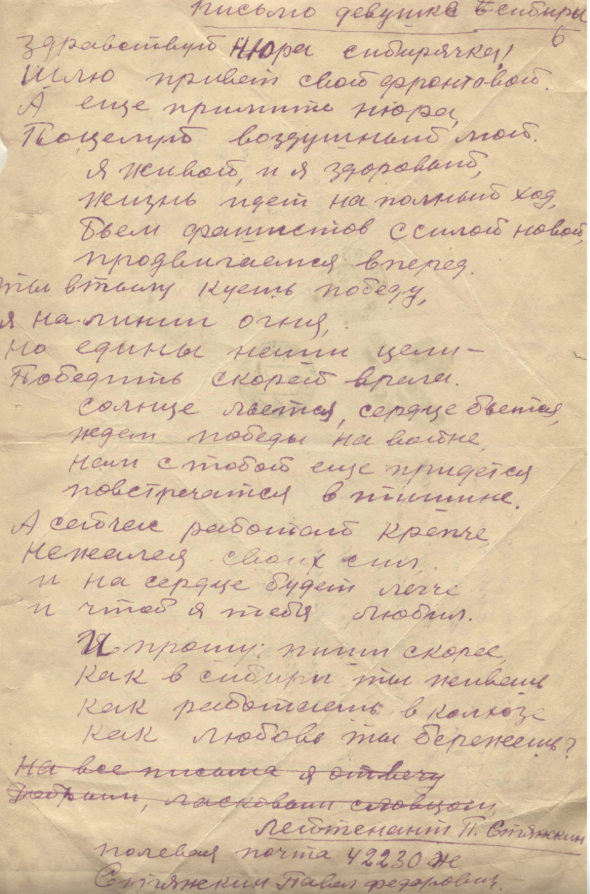 письмо девушке в сибирь
6
Здравствуй Нюра сибирячка!
Шлю привет свой фронтовой.
А еще примити нюра,
Поцелуй воздушный мой.
Я живой, и я здоровый,
жизнь идет на полный ход,
Бьем фашистов с силой новой,
продвигаемся вперед.
ты в тылу куешь победу,
я на линии огня,
но едины наши цели –
Победить скорей врага.
солнце льется, сердце бьется,
ждем победы на войне,
нам с тобой еще придется
повстречатся в тишине.
А сейчас работай крепче,
нежалея своих сил.
и на сердце будет легче
и чтоб я тебя любил.
И прошу: пиши скорее,
как в сибири ты живешь
как работаешь в колхозе
как любовь ты бережешь?
На все письма я отвечу
Добрым, ласковым словцом,
лейтенант П. Стяжкин
полевая почта 42230 ж
Стяжкин Павел федорович.